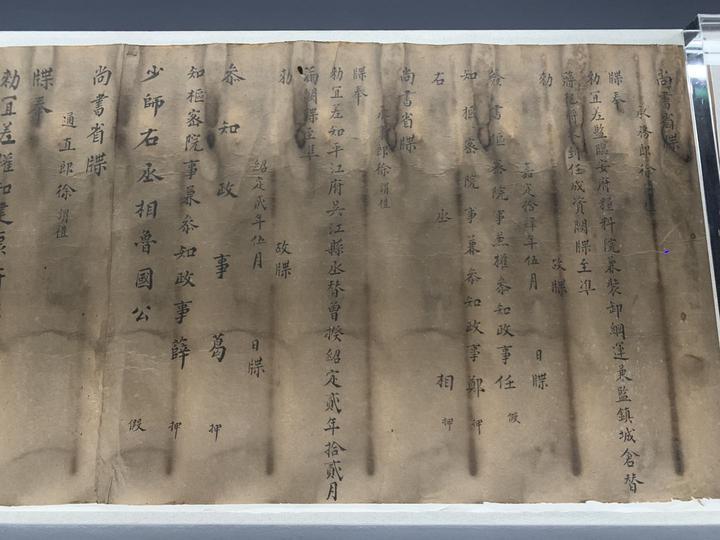 尚書省牒
承務郎徐謂禮
牒奉
勑宜差監臨安府糧料院兼裝卸綱運兼監鎮城倉替
任成資闕牒至準
勑故牒
嘉定拾肆年伍月 日牒
簽書樞密院事兼權參知政事任 假
知樞密院事兼參知政事鄭 押
右丞相 押
尚書省牒
承務郎徐謂禮
牒奉
勑宜差知平江府吳江縣丞替曾揆紹定貳年拾貳月
滿闕牒至準
勑故牒
紹定貳年伍月 日牒
參知政事葛 押
知樞密院事兼參知政事薛 押
少師右丞相魯國公 假
尚書省牒
通直郎徐謂禮
牒奉
勑宜差權知建康府